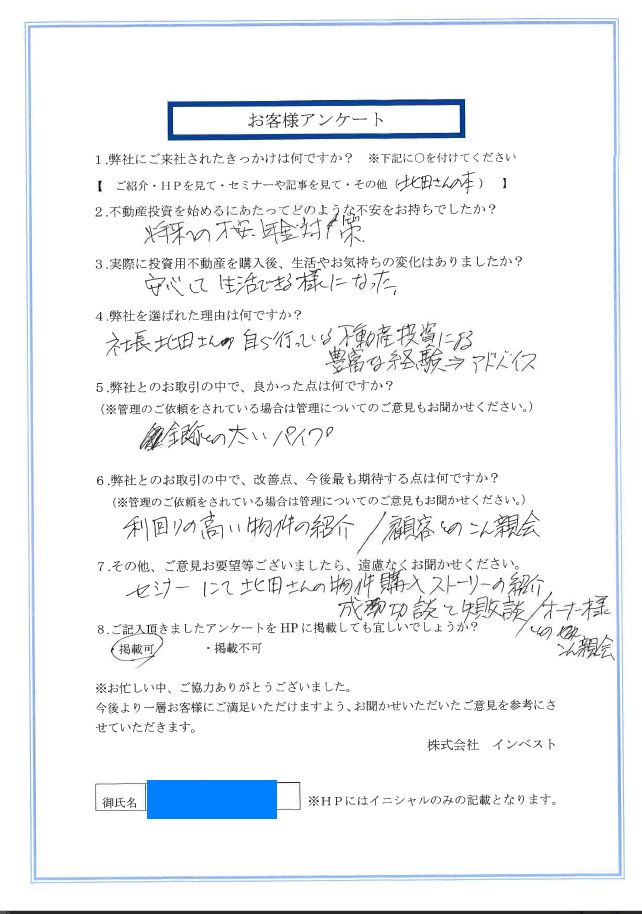 お客様アンケート
1.弊社にご来社されたきっかけは何ですか? ※下記に〇を付けてください
【 ご紹介・HPを見て・セミナーや記事を見て・その他(北田さんの本) 】
2.不動産投資を始めるにあたってどのような不安をお持ちでしたか?
将来への不安、年金対策
3.実際に投資用不動産を購入後、生活やお気持ちの変化はありましたか?
安心して生活できる様になった。
4.弊社を選ばれた理由は何ですか?
社長北田さんの自ら行っている不動産投資による
豊富な経験⇒アドバイス
5.弊社とのお取引の中で、良かった点は何ですか?
(※管理のご依頼をされている場合は管理についてのご意見もお聞かせください。)
銀行との太いパイプ
6.弊社とのお取引の中で、改善点、今後最も期待する点は何ですか?
(※管理のご依頼をされている場合は管理についてのご意見もお聞かせください。)
利回りの高い物件の紹介/顧客とのこん親会
7.その他、ご意見お要望等ございましたら、遠慮なくお聞かせください。
セミナーにて北田さんの物件購入ストーリーの紹介
成功談と失敗談/オーナー様
とのこん親会
8.ご記入頂きましたアンケートをHPに掲載しても宜しいでしょうか?
・掲載可 ・掲載不可
※お忙しい中、ご協力ありがとうございました。
今後より一層お客様にご満足いただけますよう、お聞かせいただいたご意見を参考にさ
せていただきます。
株式会社 インベスト
御氏名 ※HPにはイニシャルのみの記載となります。